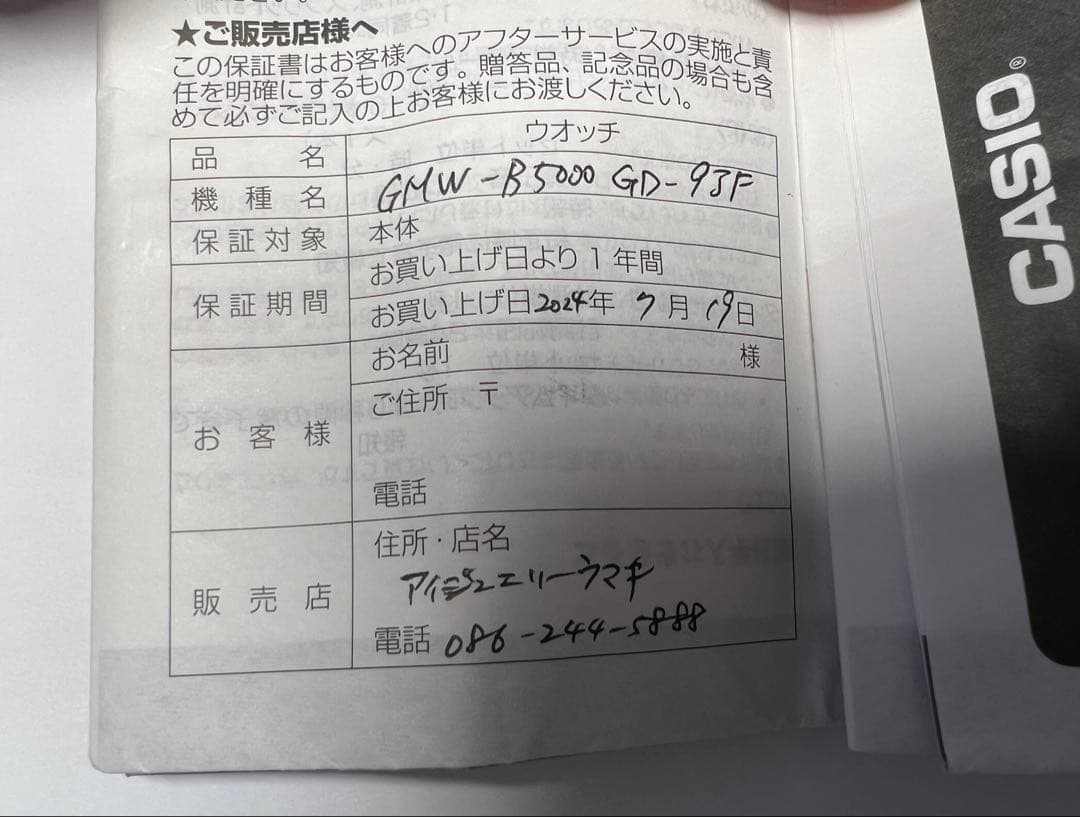 ★ご販売店様へ
この保証書はお客様へのアフターサービスの実施と責
任を明確にするものです。贈答品、記念品の場合も含
めて必ずご記入の上お客様にお渡しください。
品名 ウオッチ
機種名 GMW-B5000 GD-9JF
保証対象 本体
保証期間 お買い上げ日より1年間
お買い上げ日2024年 7月 19日
お客様 お名前 様
ご住所 〒
電話
販売店 住所・店名
電話 086-244-5888
CASIO®